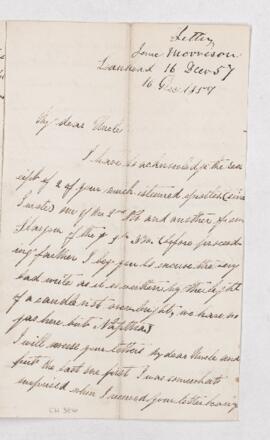 Letter
Morrison
16 Decr 57
16 Dec 1857
My dear Uncle
I have to acknowledge the rec
eipt of 2 of your much esteemed epistles (since
I wrote) one of the 2nd and another from
of the 9th Nov. before proceed
ing farther I beg you to excuse the very
bad write as it is written by the light
of a candle not overbright, we have no
gas here but Naptha
I will answer your letters my dear Uncle and
first the last one first I was somewhat
surprised when I received your letter having